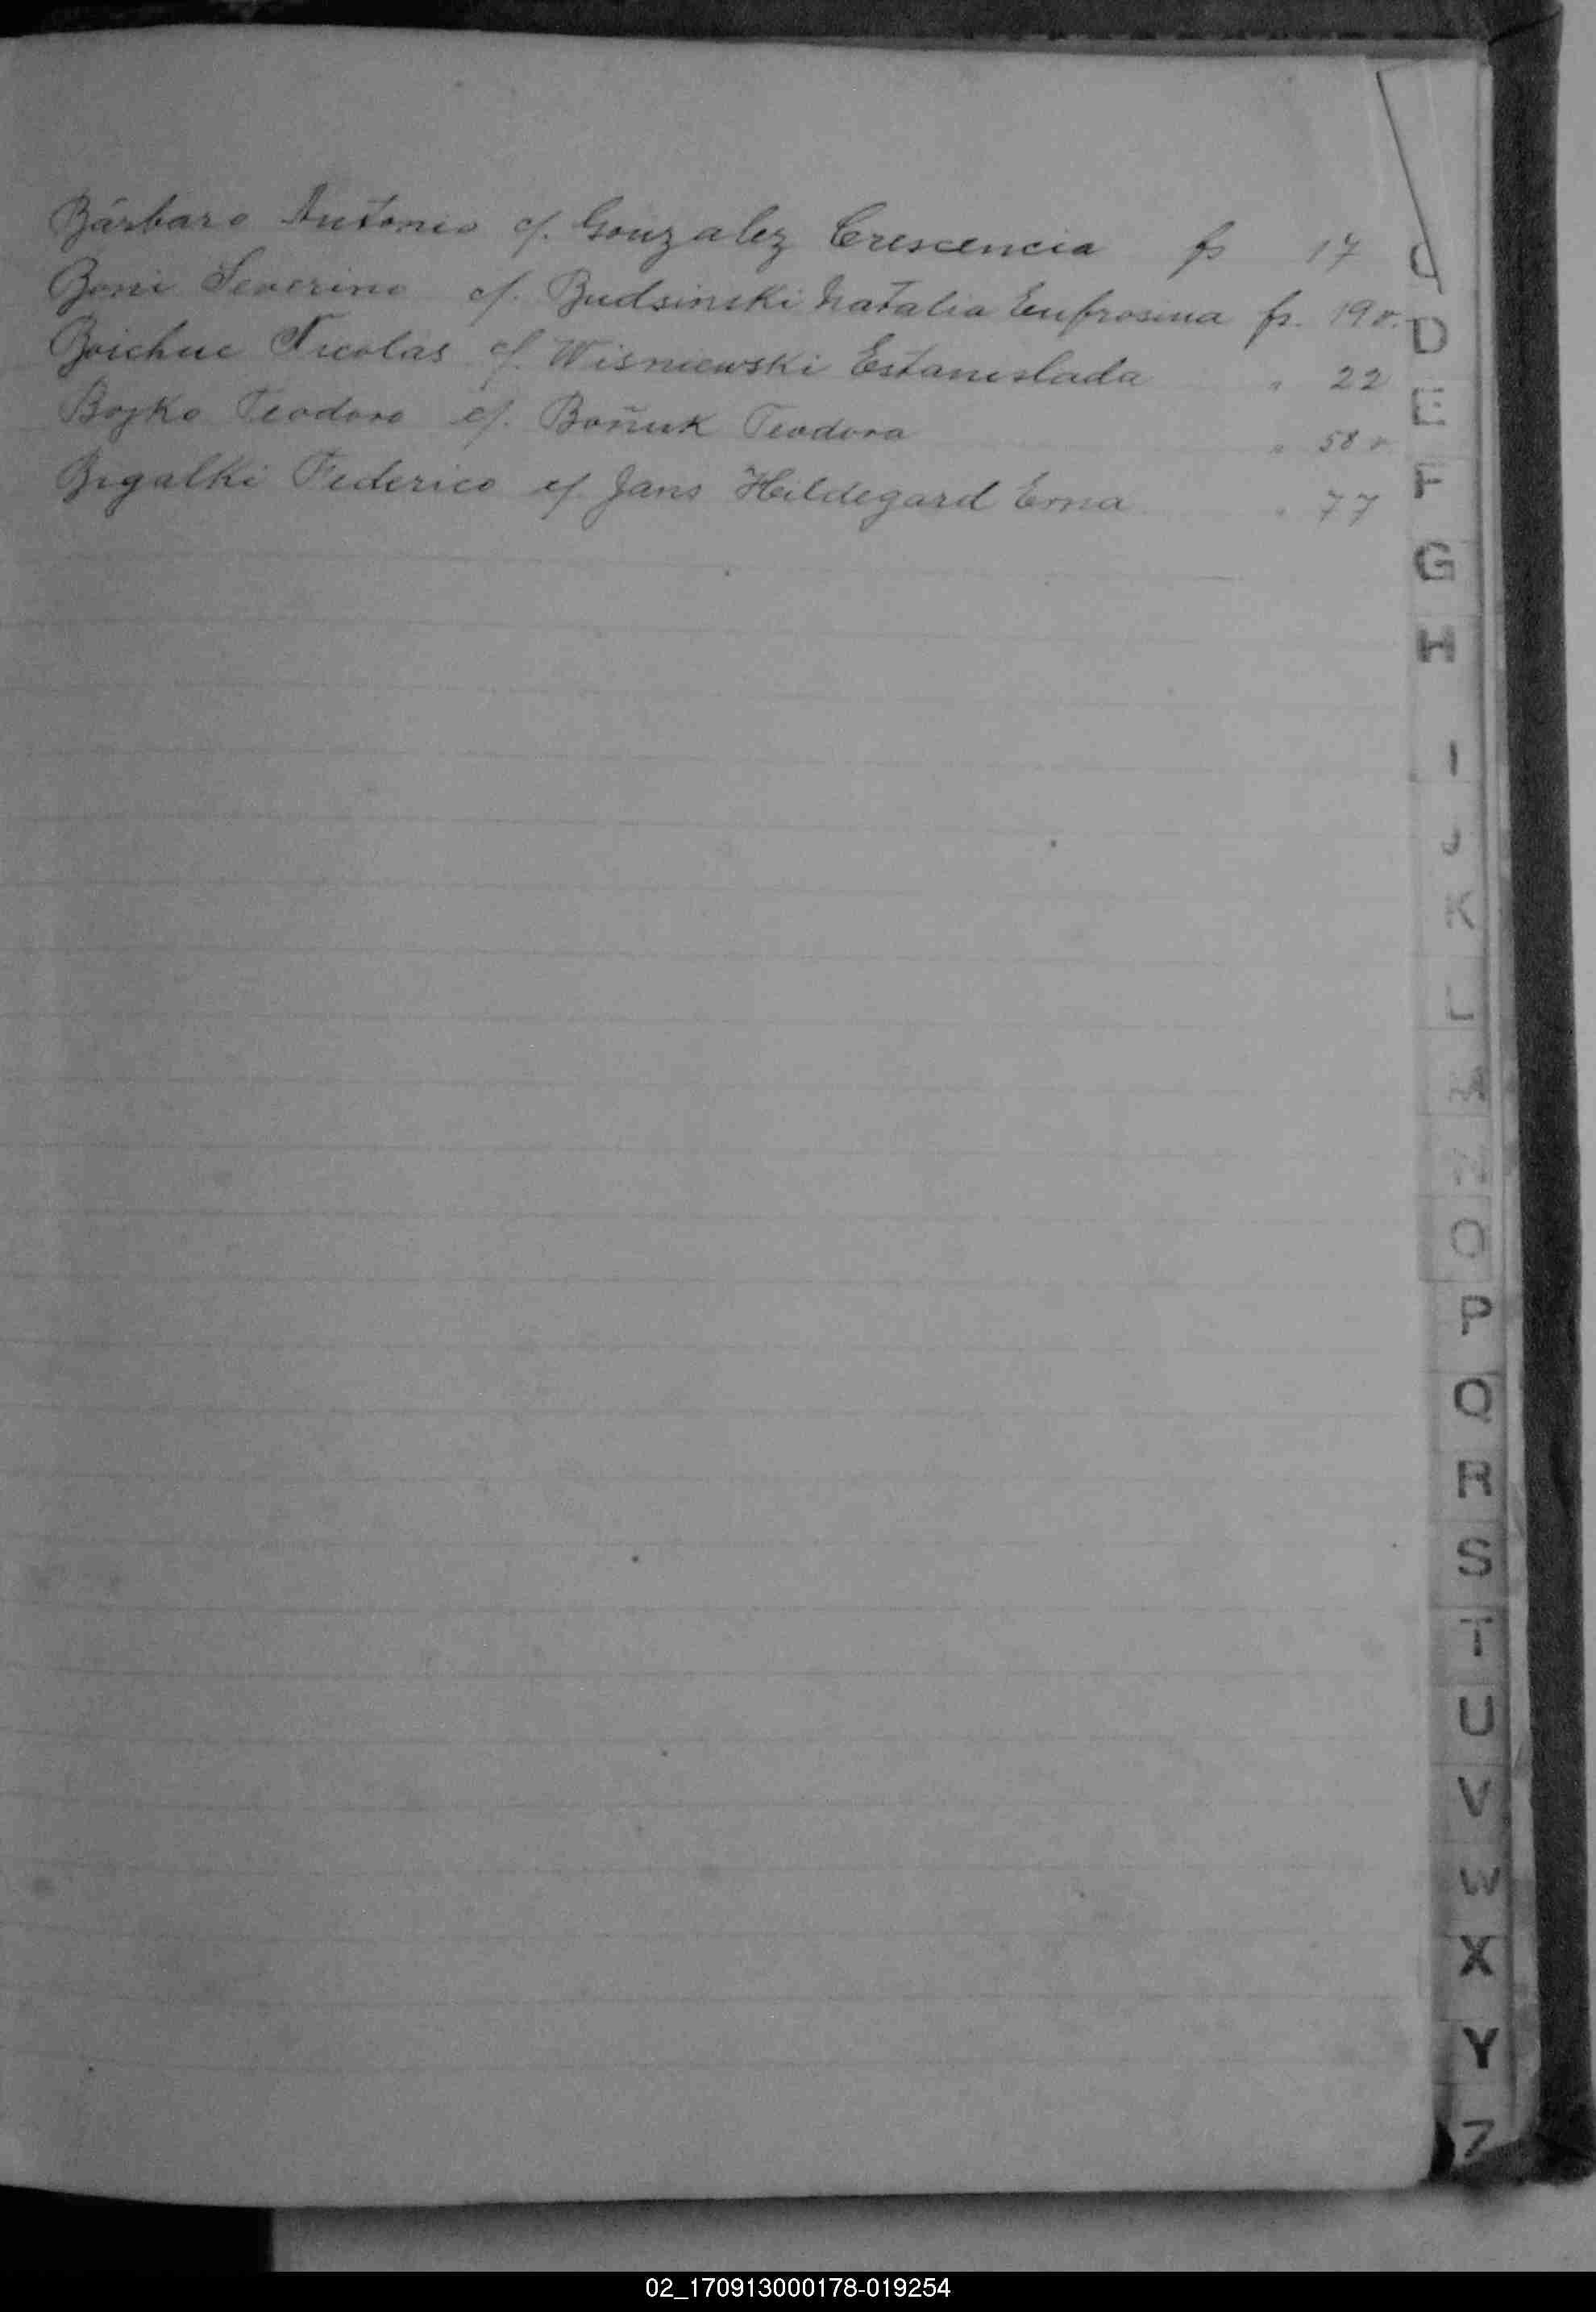 Bárbaro Antonio c/. Gonzalez Crescencia fs 17
Boni Severino c/. Budsinski Natalia Eufrosina fs. 19 v.
Boichuc Nicolas c/. Wisniewski Estanislada " 22
Bojko Teodoro c/. Boñuk Teodora " 58 v.
Bigalki Federico c/ Jans Hildegard Erna " 77
C
D
E
F
G
H
I
J
K
L
M
N
O
P
Q
R
S
T
U
V
W
X
Y
Z
02_170913000178-019254